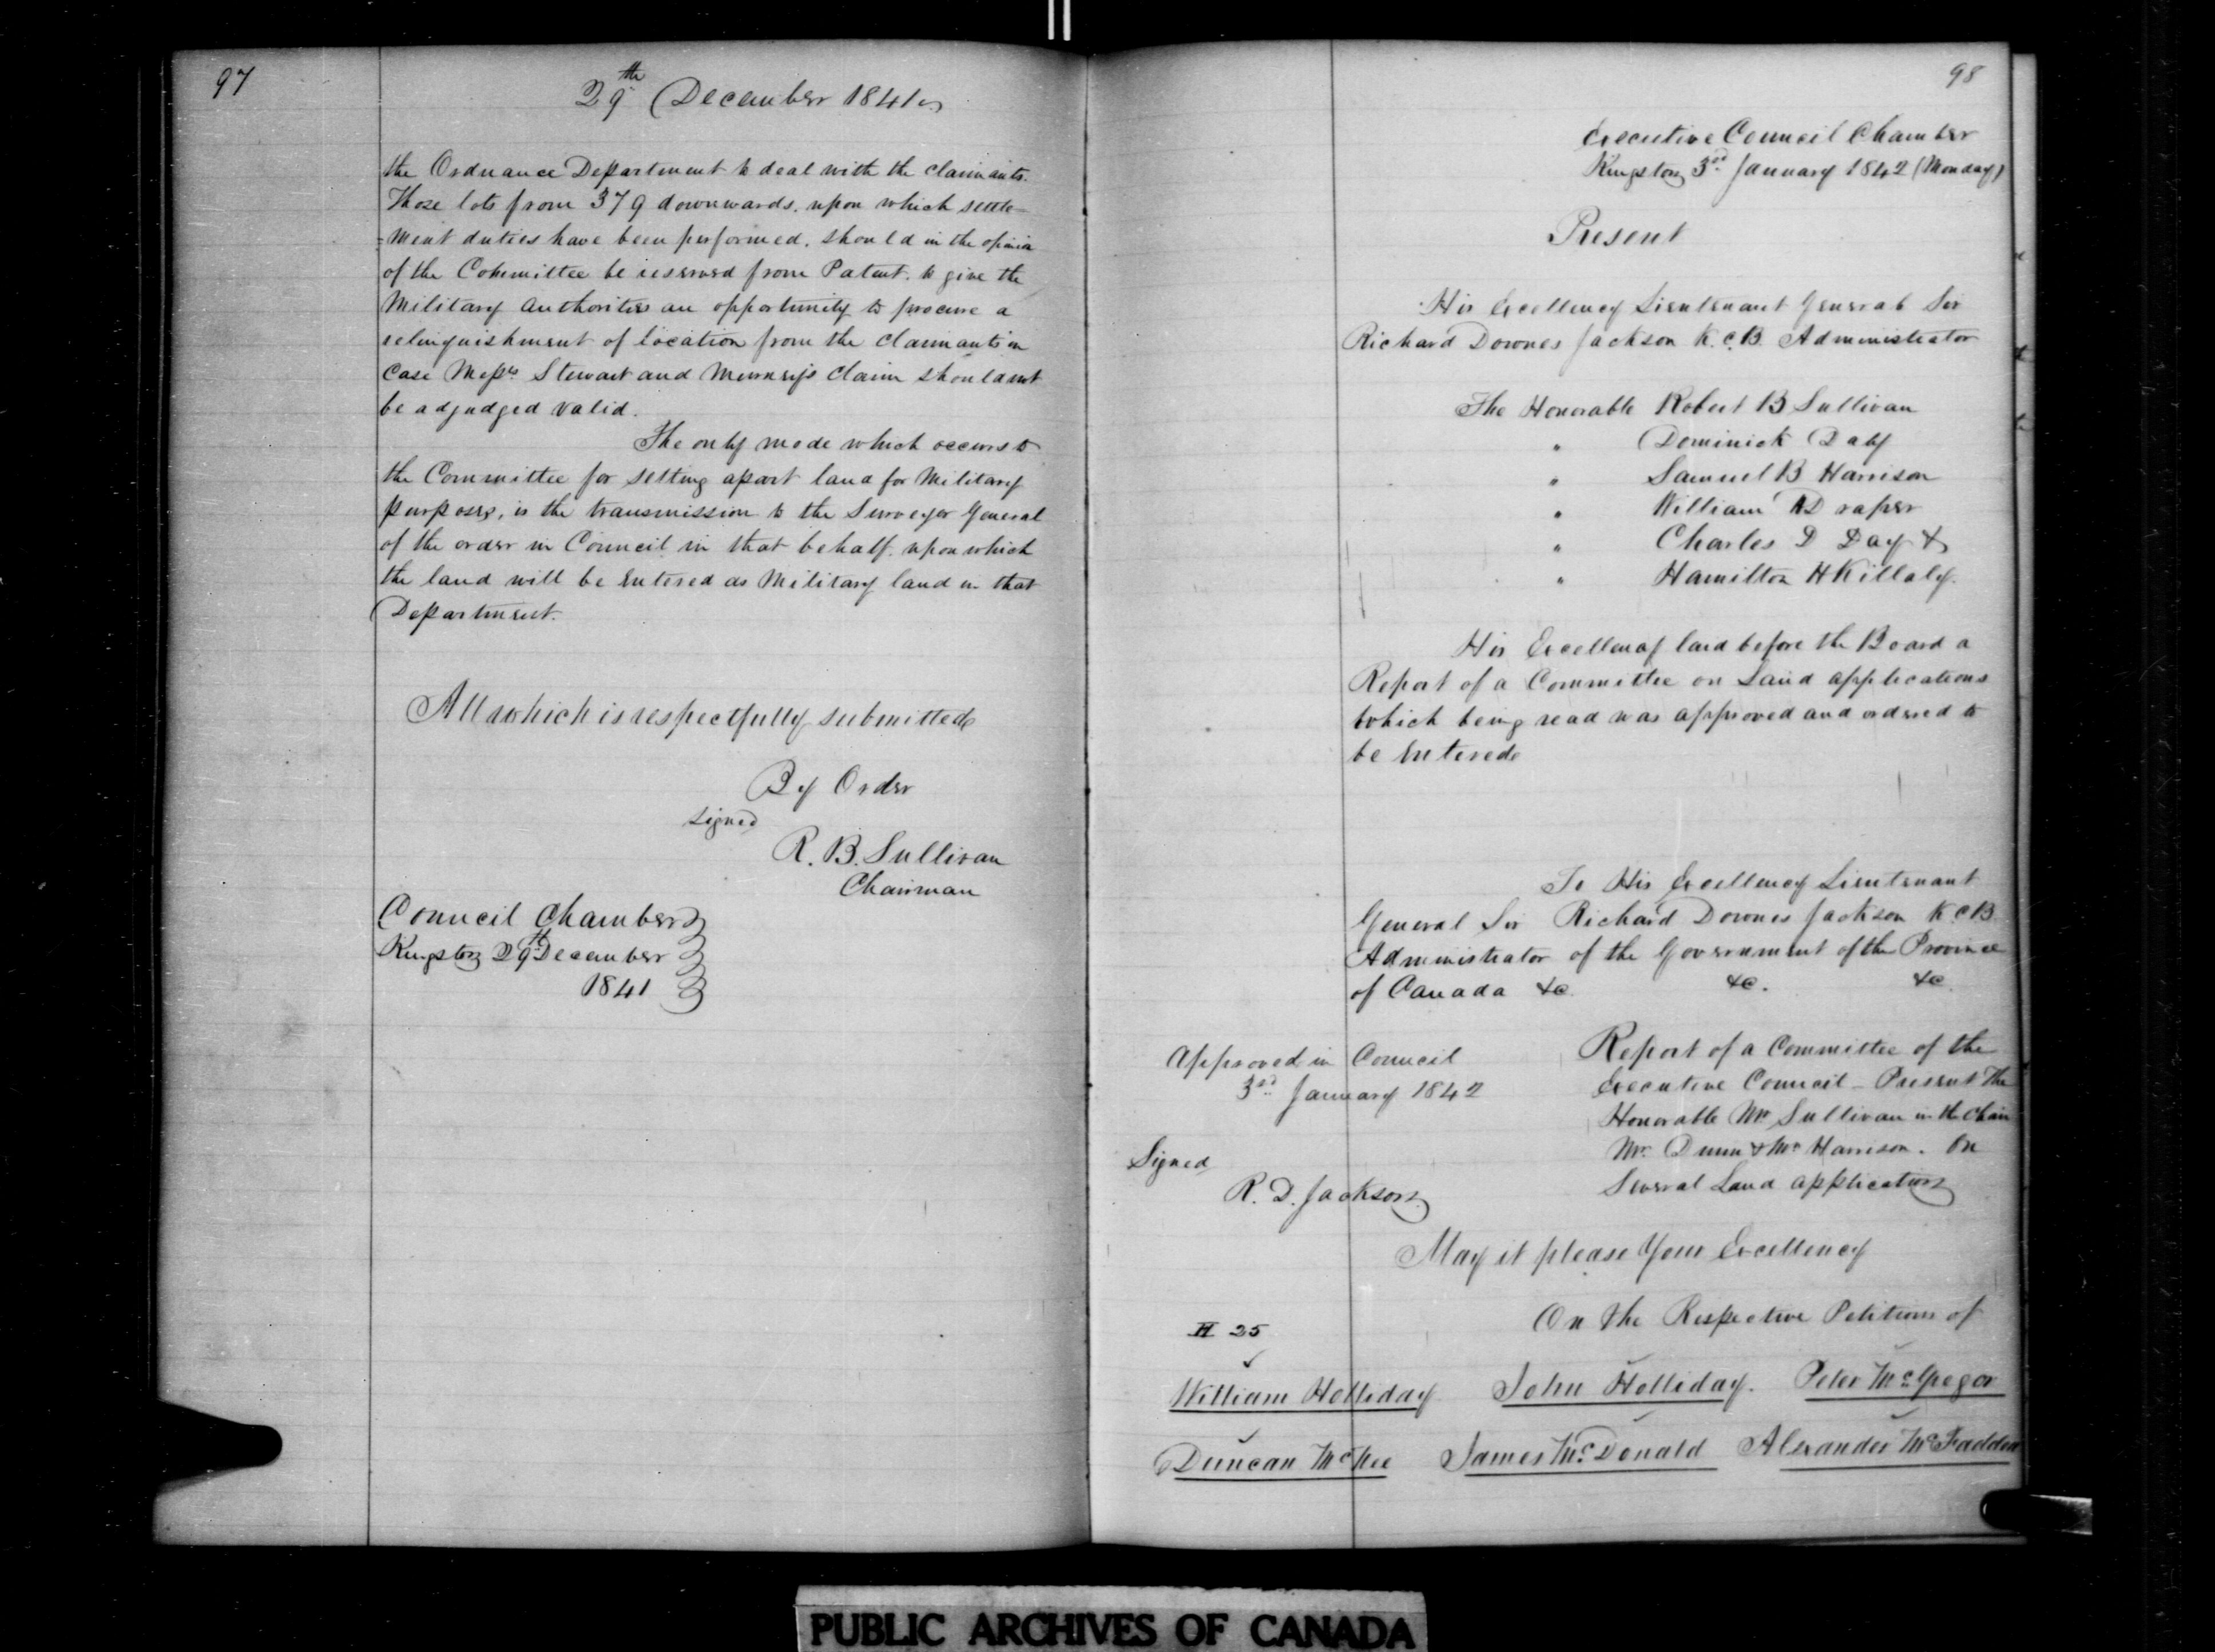 97
29th December 1841
the Ordnance Department to deal with the claimants.
Those lots from 379 downwards, upon which settle=
=ment duties have been performed, should in the opinion
of the Committee be reserved from Patent, to give the
Military Authorities an opportunity to procure a
relinquishment of location from the claimants in
Case Messrs Stewart and Murneys claim should not
be adjudged valid.
The only mode which occurs to
the Committee for setting apart land for Military
purposes, is the transmission to the Surveyor General
of the order in Council in that behalf, upon which
the land will be entered as Military land in that
Department.
All which is respectfully submitted
By Order
signed
R. B. Sullivan
Chairman
Council Chamber
Kingston 29th December
1841
98
Executive Council Chamber
Kingston 3rd January 1842 (Monday)
Present
His Excellency Lieutenant General Sir
Richard Downes Jackson K.C.B. Administrator
The Honorable Robert B Sullivan
" Dominick Daly
" Samuel B Harrison
" William Draper
" Charles D Day &
" Hamilton H Killaly.
His Excellency laid before the Board a
Report of a Committee on Land applications
which being read was approved and ordered to
be Entered
To His Excellency Lieutenant
General Sir Richard Downes Jackson K C B
Administrator of the Government of the Province
of Canada &c. &c. &c.
Approved in Council
3rd January 1842
Signed
R. D. Jackson
Report of a Committee of the
Executive Council - Present The
Honorable Mr Sullivan in the Chair
Mr. Dunn & Mr Harrison. On
Several Land applications
May it please Your Excellency
On the Respective Petitions of
H 25
William Holliday John Holliday. Peter McGregor
Duncan McKee James McDonald Alexander McFadden
PUBLIC ARCHIVES OF CANADA